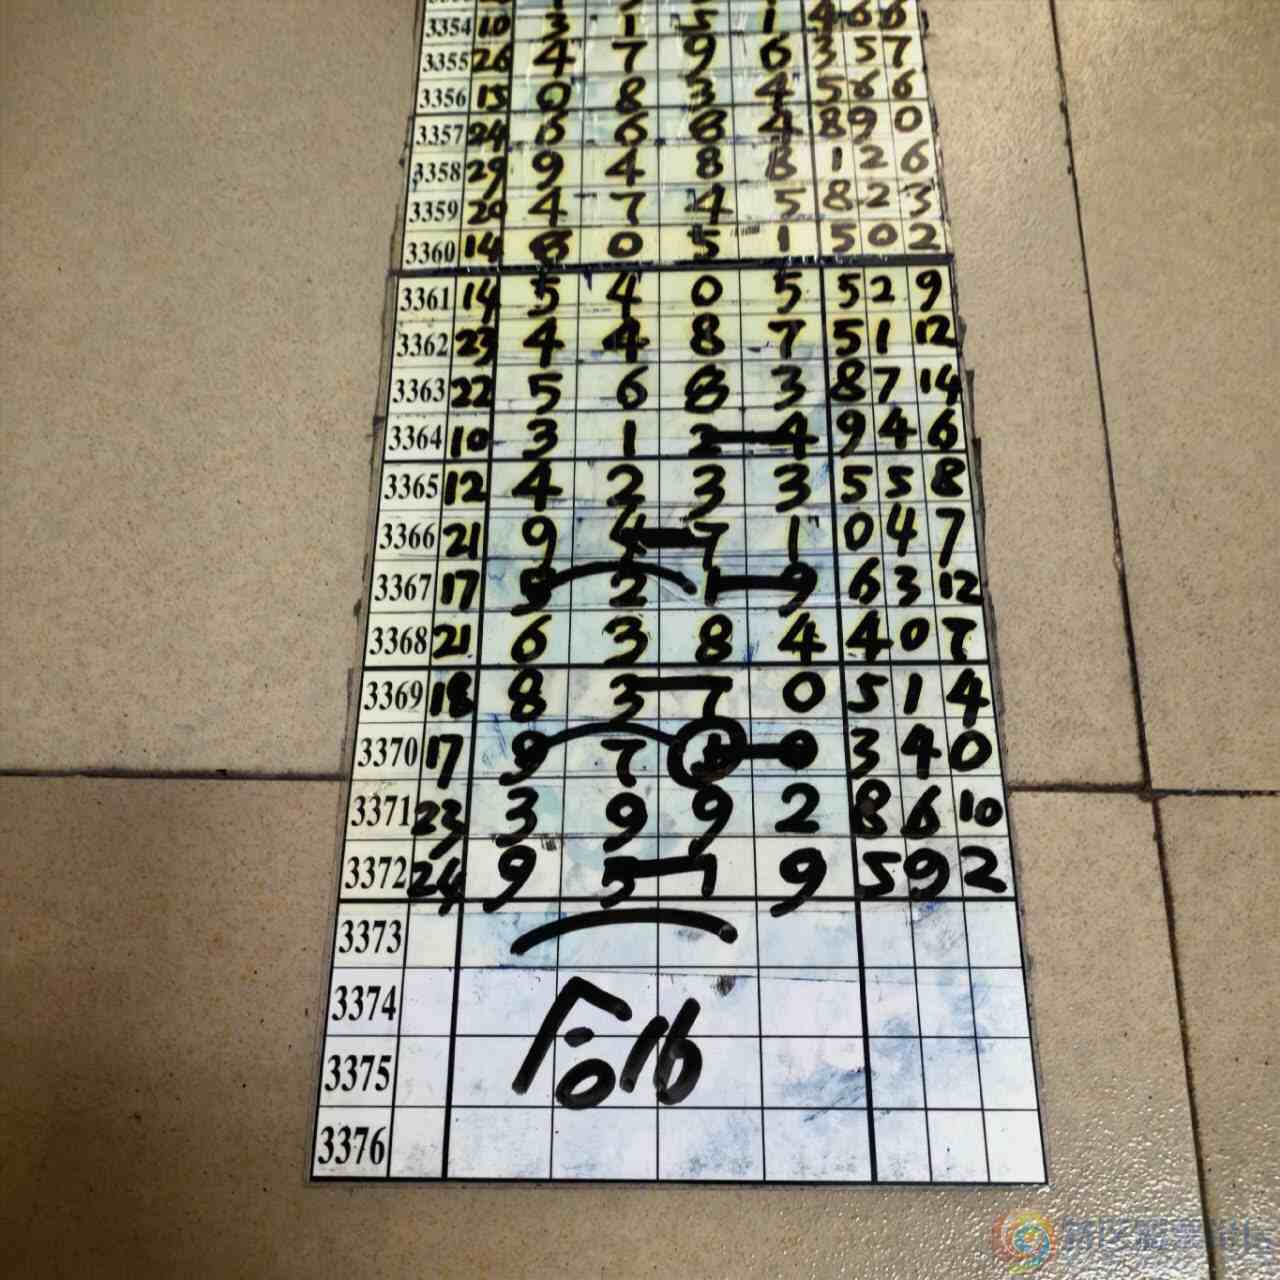 3354 10 3 1 5 1 4 6 6
3355 26 4 7 9 6 3 5 7
3356 15 0 8 3 4 5 6 6
3357 24 6 6 8 4 8 9 0
3358 29 9 4 8 8 1 2 6
3359 20 4 7 4 5 8 2 3
3360 14 8 0 5 1 5 0 2
3361 14 5 4 0 5 5 2 9
3362 23 4 4 8 7 5 1 12
3363 22 5 6 8 3 8 7 14
3364 10 3 1 2 4 9 4 6
3365 12 4 2 3 3 5 5 8
3366 21 9 4 7 1 0 4 7
3367 17 5 2 1 9 6 3 12
3368 21 6 3 8 4 4 0 7
3369 18 8 3 7 0 5 1 4
3370 17 9 7 3 4 0
3371 23 3 9 9 2 8 6 10
3372 24 9 5 1 9 5 9 2
3373
3374
016
3375
3376